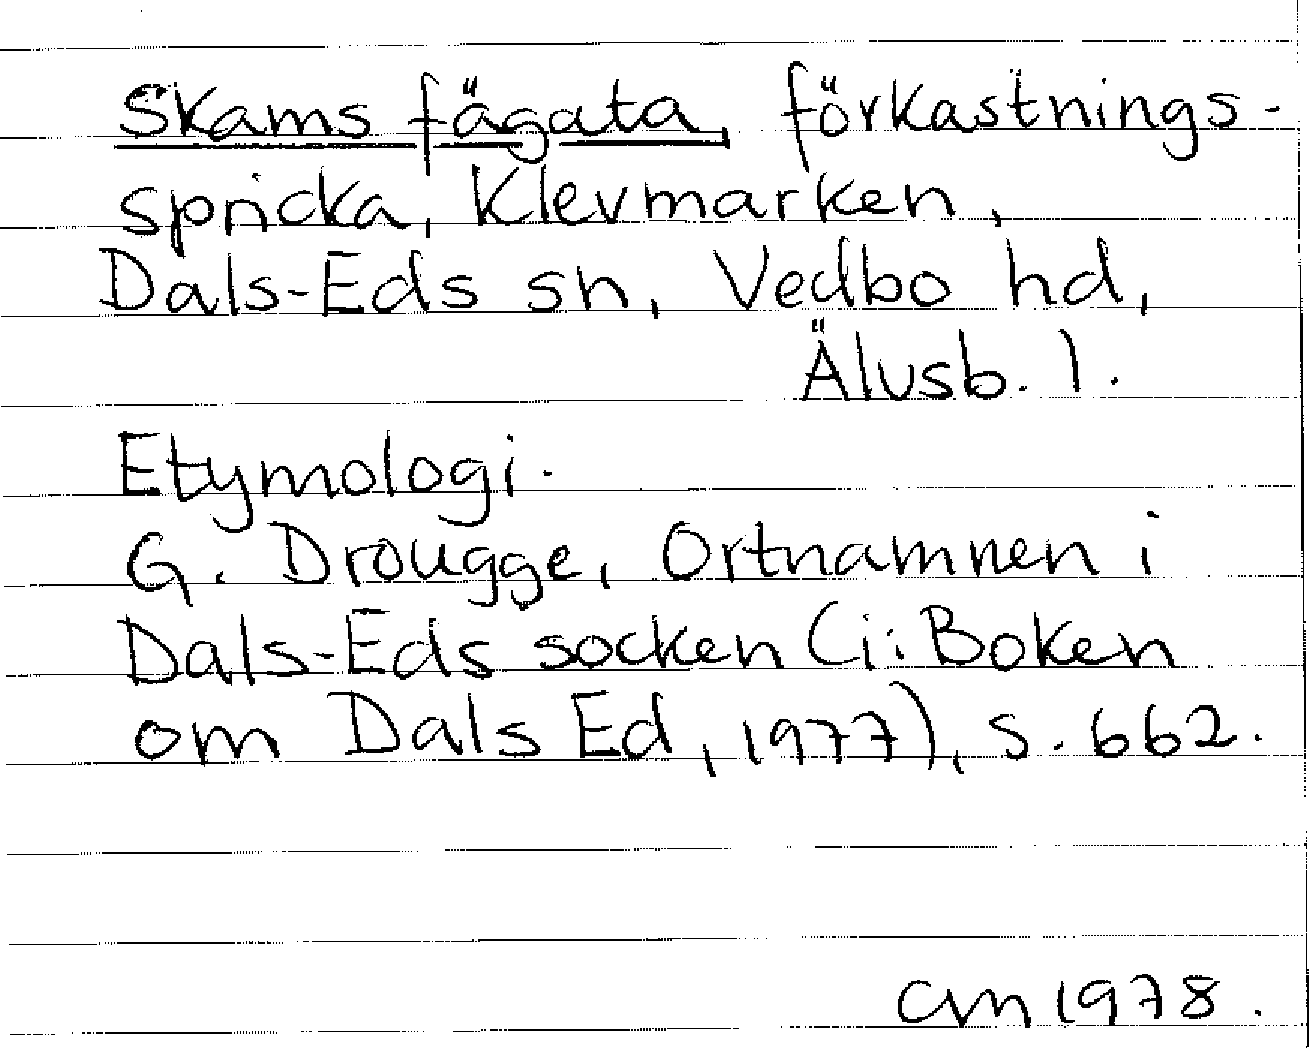 Skams fägata, förkastnings-
spricka, Klevmarken,
Dals-Eds sn, Vedbo hd,
Älvsb. l.
Etymologi.
G. Drougge, Ortnamnen i
Dals-Eds socken (i: Boken
om Dals Ed, 1977), s. 662.
CM 1978.